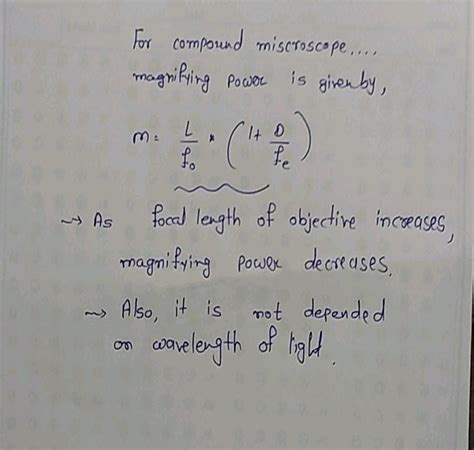 For compound miscroscope,...
magnifying power is given by,
m = L/f₀ * (1+ D/fₑ)
→ As focal length of objective increases,
magnifying power decreases.
→ Also, it is not depended
on wavelength of light.